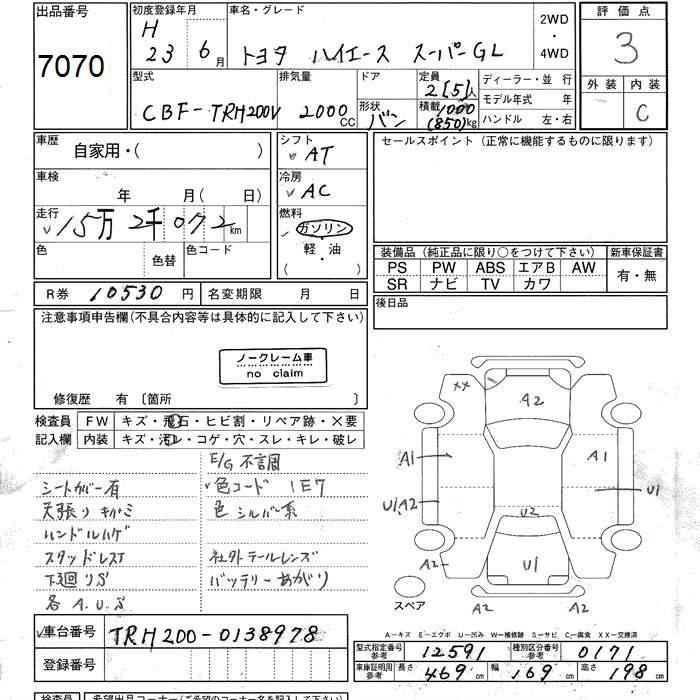 出品番号
7070
初度登録年月
H
23 6月
車名・グレード
トヨタ ハイエース スーパーGL
2WD
・
4WD
評価点
3
外装 内装
C
型式
CBF-TRH200V
排気量
2000CC
ドア
形状
バン
定員
2[5]人
積載
1000
(850)kg
ディーラー・並 行
モデル年式 年
ハンドル 左・右
車歴
自家用・( )
車検
年 月( 日)
走行
15万2千072km
色
色替
色コード
シフト
AT
冷房
AC
燃料
ガソリン
軽・油
( ・ )
セールスポイント (正常に機能するものに限ります)
装備品 (純正品に限り○をつけて下さい)
新車保証書
PS PW ABS エアB AW
SR ナビ TV カワ
有・無
R券 10530円
名変期限 月 日
後日品
注意事項申告欄(不具合内容等は具体的に記入して下さい)
ノークレーム車
no claim
修復歴 有〔箇所 〕
検査員
記入欄
FW キズ・飛石・ヒビ割・リペア跡・×要
内装 キズ・汚レ・コゲ・穴・スレ・キレ・破レ
E/G 不調
シートカバー有
色コード 1E7
天張りキバミ
色 シルバー系
ハンドルハゲ
スタッドレス
社外テールレンズ
下廻りS
バッテリーあがり
各A.U.S
XX
A2
A1
A1
U1
U1,A2
U2
U1
A2
A2
A2 A2
スペア
A−キズ E−エクボ U−凹み W−補修跡 S−サビ C−腐食 XX−交換済
車台番号
TRH200-0138978
登録番号
型式指定番号
参考
12591
種別区分番号
参考
0171
車庫証明用
参考
長さ 469cm 幅 169cm 高さ 198cm
検査員
希望出品コーナー(ご希望のコーナー名を記入して下さい)